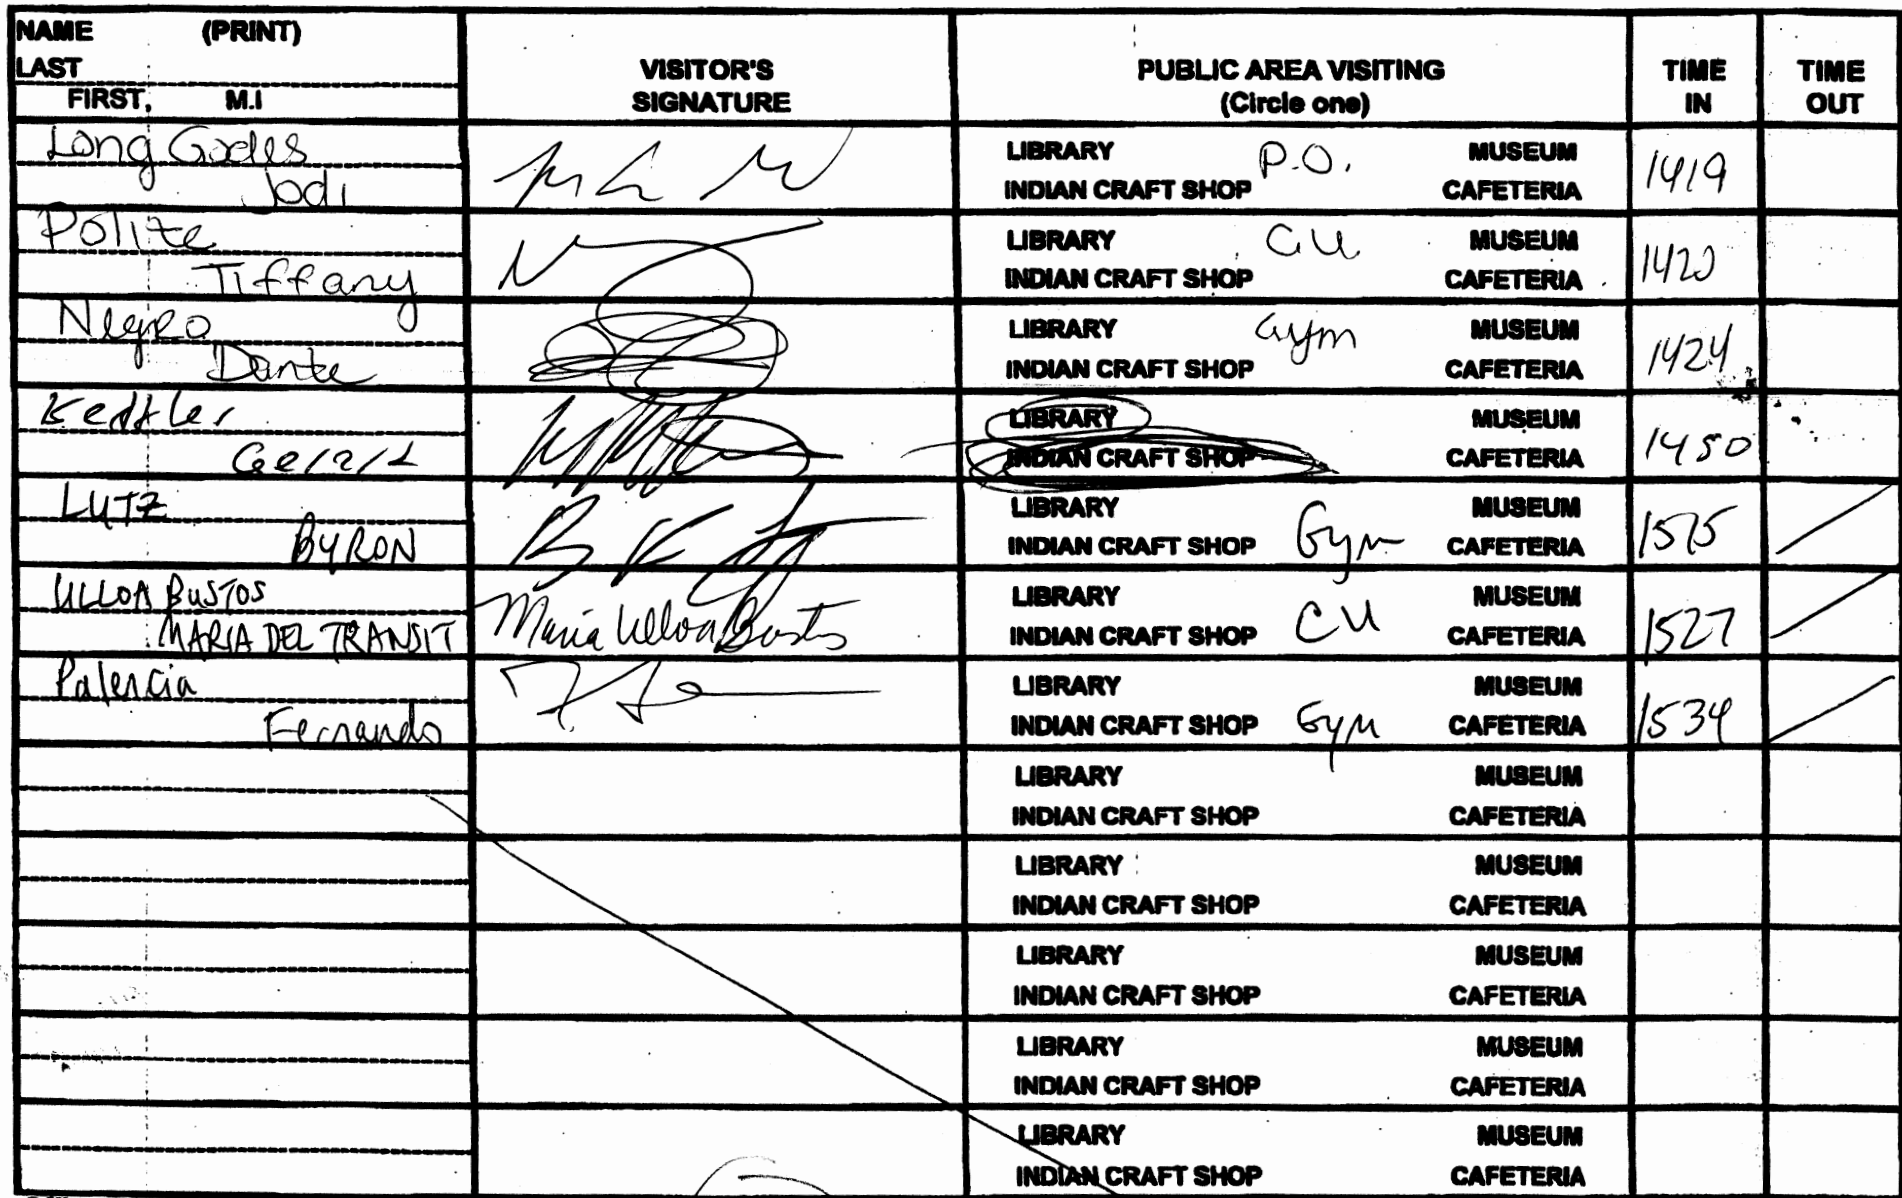 NAME (PRINT)
LAST
FIRST, M.I
VISITOR'S
SIGNATURE
PUBLIC AREA VISITING
(Circle one)
TIME
IN
TIME
OUT
Long
Jodi
LIBRARY P.O. MUSEUM
INDIAN CRAFT SHOP CAFETERIA
1419
Polite
Tiffany
LIBRARY CU MUSEUM
INDIAN CRAFT SHOP CAFETERIA
1420
Negro
Dante
LIBRARY Gym MUSEUM
INDIAN CRAFT SHOP CAFETERIA
1424
LIBRARY MUSEUM
INDIAN CRAFT SHOP CAFETERIA
1450
LUTZ
BYRON
LIBRARY MUSEUM
INDIAN CRAFT SHOP Gym CAFETERIA
1515
ULLOA BUSTOS
MARIA DEL TRANSIT
Maria Ulloa Bustos
LIBRARY MUSEUM
INDIAN CRAFT SHOP CU CAFETERIA
1527
Palencia
Fernando
LIBRARY MUSEUM
INDIAN CRAFT SHOP Gym CAFETERIA
1534
LIBRARY MUSEUM
INDIAN CRAFT SHOP CAFETERIA
LIBRARY MUSEUM
INDIAN CRAFT SHOP CAFETERIA
LIBRARY MUSEUM
INDIAN CRAFT SHOP CAFETERIA
LIBRARY MUSEUM
INDIAN CRAFT SHOP CAFETERIA
LIBRARY MUSEUM
INDIAN CRAFT SHOP CAFETERIA